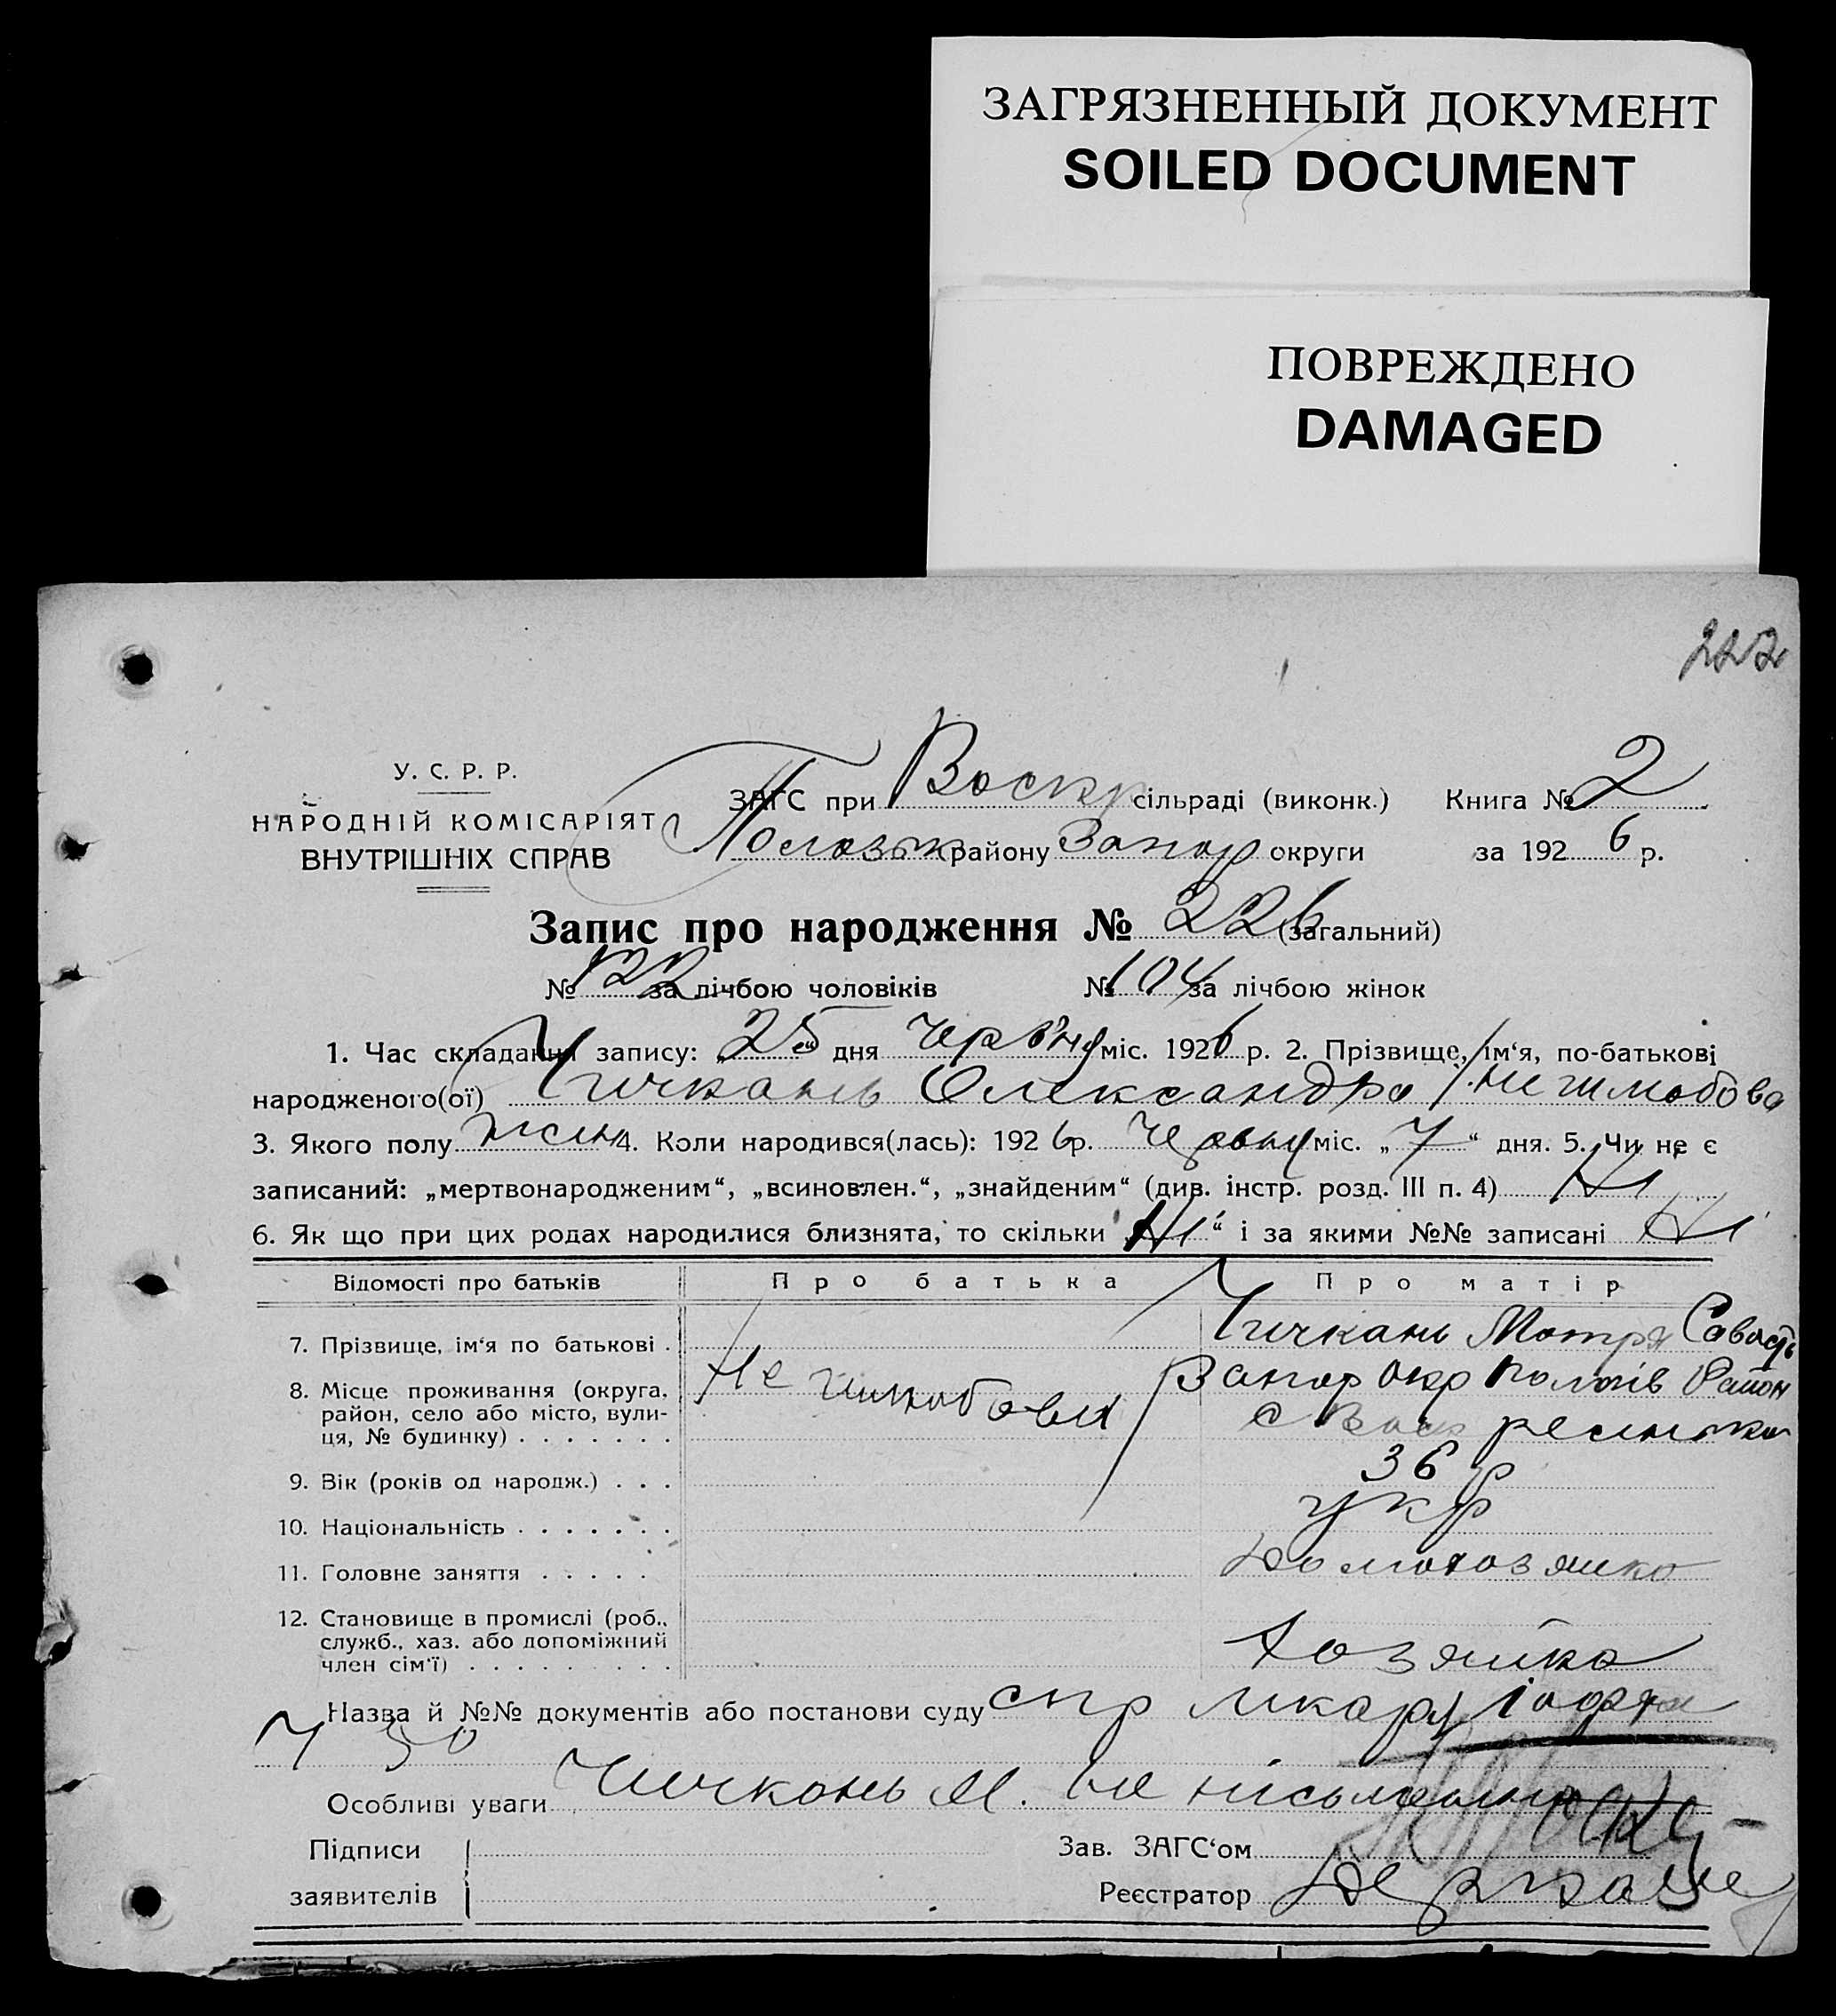 ЗАГРЯЗНЕННЫЙ ДОКУМЕНТ
SOILED DOCUMENT
ПОВРЕЖДЕНО
DAMAGED
222
У. С. Р. Р.
НАРОДНІЙ КОМІСАРІЯТ
ВНУТРІШНІХ СПРАВ
ЗАГС при Воскр сільраді (виконк.) Книга № 2
району Запор округи за 1926 р.
Запис про народження № 226 (загальний)
№ 122 за лічбою чоловіків № 104 за лічбою жінок
1. Час складання запису: „25" дня Черв'ня міс. 1926 р. 2. Прізвище, ім'я, по-батькові
народженого(ої) Чичкань Олександра
3. Якого полу жін 4. Коли народився(лась): 1926р. Червня міс. „7" дня. 5. Чи не є
записаний: „мертвонародженим", „всиновлен.", „знайденим" (див. інстр. розд. III п. 4) Ні
6. Як що при цих родах народилися близнята, то скільки „Ні" і за якими №№ записані Ні
Відомості про батьків Про батька Про матір
7. Прізвище, ім'я по батькові . Чичкань Мотря Саваст
8. Місце проживання (округа, район, село або місто, вулиця, № будинку) . . . . . . . Не Запор Окр Район
с Воскресенка
9. Вік (років од народж.) . . . 36 р
10. Національність . . . . . . . укр
11. Головне заняття . . . . . Домохозяйка
12. Становище в промислі (роб., служб., хаз. або допоміжний член сім'ї) . . . . . . . . . Хозяйка
Назва й №№ документів або постанови суду спр лікаря
Особливі уваги Чичкань М. не письменна
Підписи Зав. ЗАГС'ом
заявителів Реєстратор